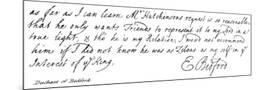 as far as I can learn Mr Hutchensons request is so reasonable,
that he only wants Friends to represent it to my Lord in a
true light, & tho he is my Relation, I wou'd not recommend
him if I did not know he was as Zelous as my self in ye
Interest of ye King.
E Bedford
Duchess of Bedford.